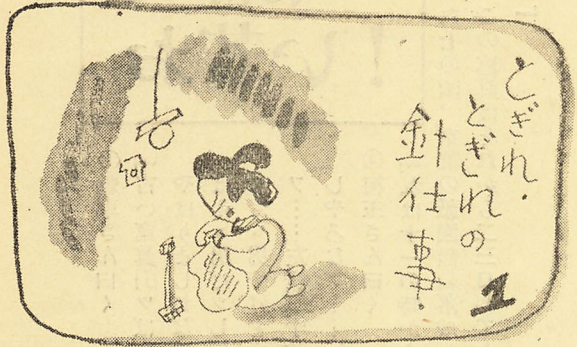 とぎれ・
とぎれの
針仕事・
1